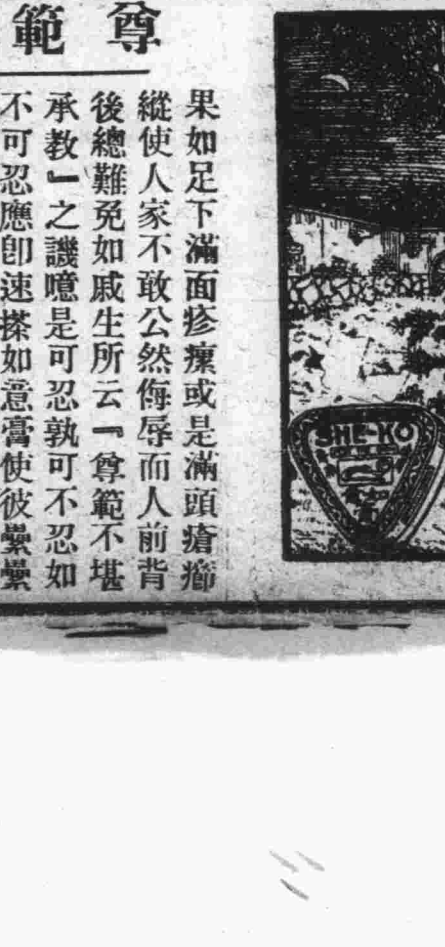 尊範
果如足下滿面疹瘰或是滿頭瘡癤
縱使人家不敢公然侮辱而人前背
後總難免如戚生所云『尊範不堪
承教』之譏噫是可忍孰可不忍如
不可忍應卽速搽如意膏使彼纍纍
SHE-KO